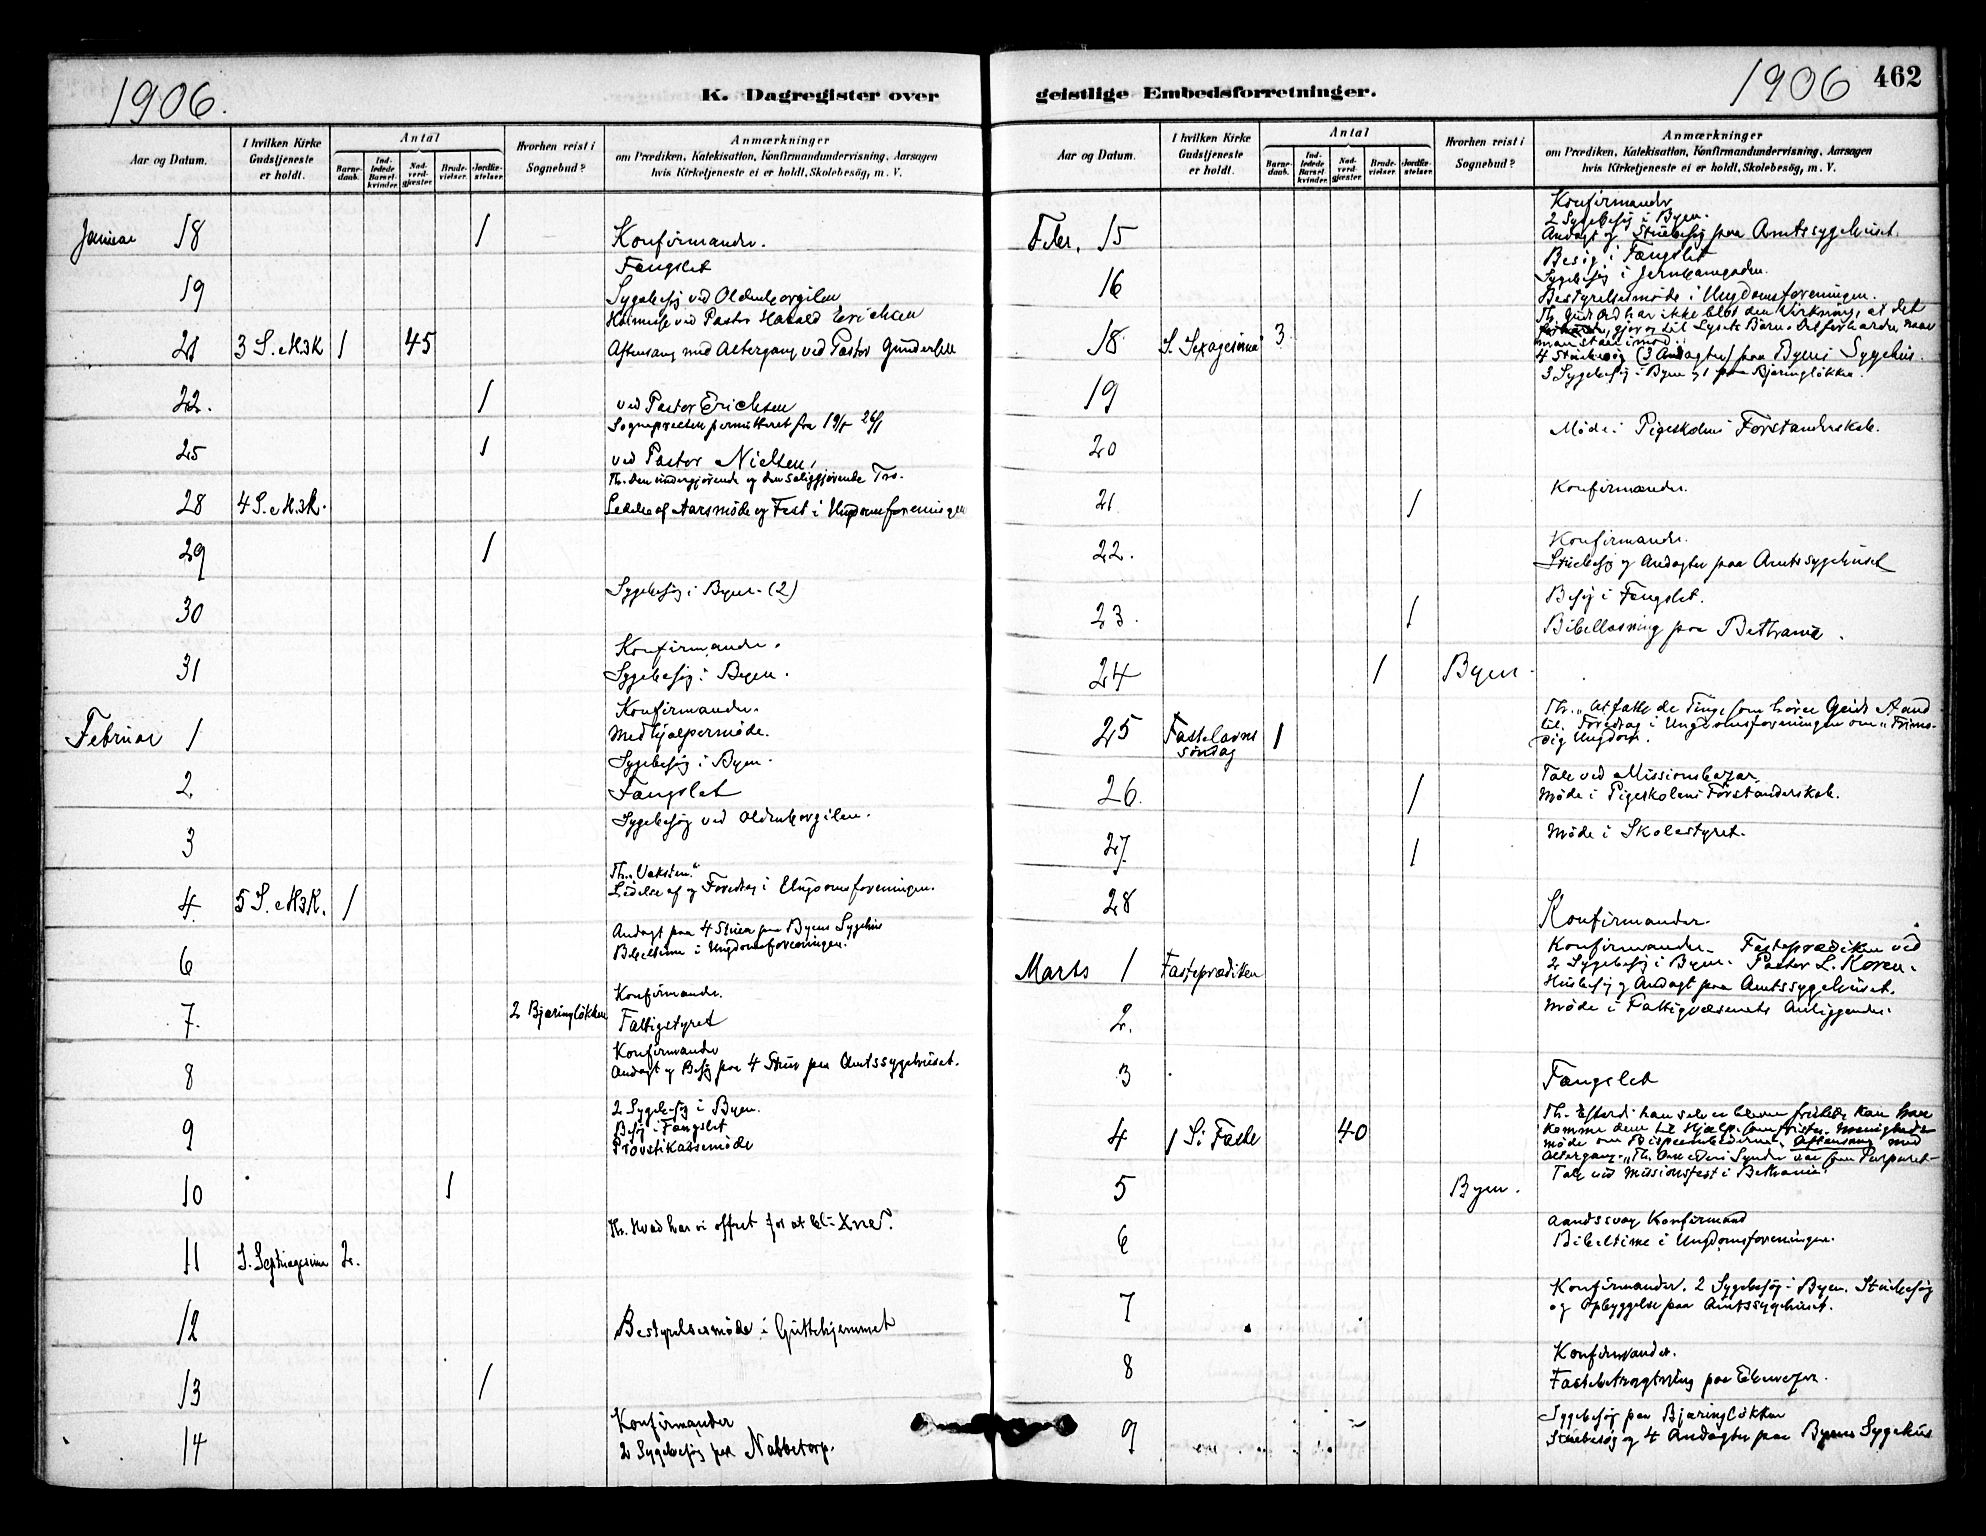 1906.
K. Dagregister over
Aar og Datum.
I hvilken Kirke Gudstjeneste er holdt.
Antal
Barnedaab.
Indledede Barselkvinder.
Nadverdgjæster.
Brudevielser.
Jordfæstelser.
Hvorhen reist i Sognebud?
Anmærkninger
om Prædiken, Katekisation, Konfirmandundervisning, Aarsagen
hvis Kirketjeneste ei er holdt, Skolebesøg, m. V.
Januar 18 1 Konfirmander.
Fængslet
19 Sygebesøg ved Oldenborgilen
ved Pastor Harald Erichsen
21 3 S. e. H3K 1 45 Aftensang med Altergang ved Pastor Gundersen
22. 1 ved Pastor Erichsen
Sognepresten permitteret fra 19/1 26/1
25 1 ved Pastor Nielsen.
Th. Den undergjørende og den saliggjørende Tro.
28 4 S. e. H.3K. Ledelse af Aarsmøde og Fest i Ungdomsforeningen
29 1
30 Sygebesøg i Byen. (2)
31 Konfirmander.
Sygebesøg i Byen.
Februar 1 Konfirmander.
Medhjælpermøde.
Sygebesøg i Byen.
2 Fængslet
3 Sygebesøg ved Oldenborgilen.
4. 5 S. e. H3K. 1 Th.
Ledelse af og Foredrag i Ungdomsforeningen.
6 Andagt paa 4 Stuer paa Byens Sygehus
Bibeltime i Ungdomsforeningen.
7. 2 Bjæringløkken Konfirmander.
Fattigstyret
8 Konfirmander
Andagt og Besøg paa 4 Stuer paa Amtssygehuset.
9 2 Sygebesøg i Byen.
Besøg i Fængslet
Provstikassemøde
10 1
11 S. Septuagesima 2. Th. Hvad har vi offret for at bli Xne?
12 Bestyrelsesmøde i Guttehjemmet
13 1
14 Konfirmander
2 Sygebesøg paa Nabbetorp.
geistlige Embedsforretninger.
1906 462
Aar og Datum.
I hvilken Kirke Gudstjeneste er holdt.
Antal
Barnedaab.
Indledede Barselkvinder.
Nadverdgjæster.
Brudevielser.
Jordfæstelser.
Hvorhen reist i Sognebud?
Anmærkninger
om Prædiken, Katekisation, Konfirmandundervisning, Aarsagen
hvis Kirketjeneste ei er holdt, Skolebesøg, m. V.
Febr. 15 Konfirmander
2 Sygebesøg i Byen.
Andagt og Stuebesøg paa Amtssygehuset.
Besøg i Fængslet
16 Sygebesøg i Jernbanegaden.
Bestyrelsesmøde i Ungdomsforeningen.
18. S. Sexagesima 3. Th. Guds Ord har ikke blot den Virkning, at det
gjør os til Lysets Børn. Det forhærder, naar
man staar imod.
4 Stuebesøg (3 Andagter) paa Byens Sygehus.
19 3 Sygebesøg i Byen og 1 paa Bjæringløkken.
20 Møde i Pigeskolens Forstanderskab.
21. 1 Konfirmander.
22. Konfirmander.
Stuebesøg og Andagter paa Amtssygehuset
23. 1 Besøg i Fængslet.
Bibellæsning paa Bethania.
24 1 Byen.
25 Fastelavns søndag 1 Th. "At fatte de Ting, som hører Guds Aand
til. Foredrag i Ungdomsforeningen om "
Ungdom.
26. 1 Tale ved Missionsbazar
Møde i Pigeskolens Forstanderskab.
27. 1 Møde i Skolestyret.
28 Konfirmander.
Marts 1 Fasteprædiken Konfirmander. Fasteprædiken ved
2 Sygebesøg i Byen. Pastor L. Koren.
Husbesøg og Andagt paa Amtssygehuset.
2. Møde i Fattigvæsenets Anliggender.
3 Fængslet
4 1 S i Faste 40 Th. Efterdi han selv er bleven fristet, kan han
komme dem til Hjælp, som fristes. Menigheds
møde om Bispeembederne. Aftensang med
Altergang. Th. Om eders Synder var som Purpuret
Tale ved Missionsfest i Bethania.
5 Byen.
6 Aandssvag Konfirmand
Bibeltime i Ungdomsforeningen.
7 Konfirmander. 2 Sygebesøg i Byen. Stuebesøg
og Opbyggelse paa Amtssygehuset.
8 Konfirmander.
Fastebetragtning paa Ebenezer.
9 Sygebesøg paa Bjæringløkken
Stuebesøg og 4 Andagter paa Byens Sygehus